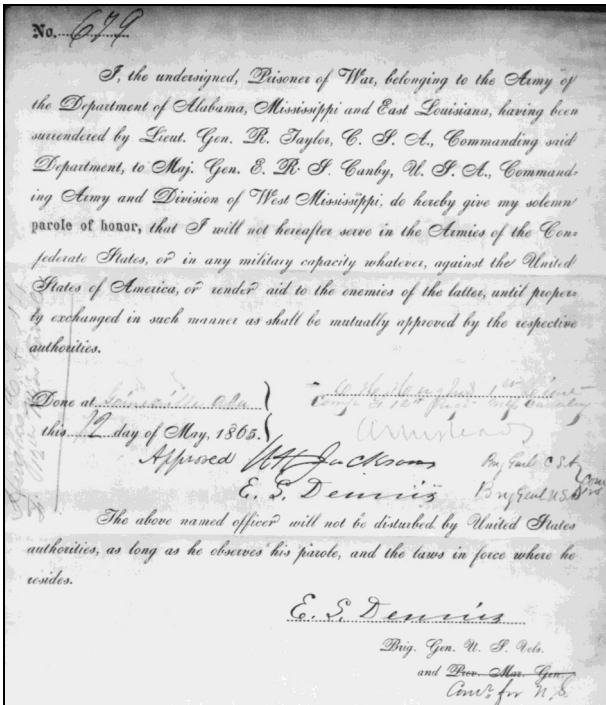 No. 679
I, the undersigned, Prisoner of War, belonging to the Army of
the Department of Alabama, Mississippi and East Louisiana, having been
surrendered by Lieut. Gen. R. Taylor, C. S. A., Commanding said
Department, to Maj. Gen. E. R. S. Canby, U. S. A., Command-
ing Army and Division of West Mississippi, do hereby give my solemn
parole of honor, that I will not hereafter serve in the Armies of the Con-
federate States, or in any military capacity whatever, against the United
States of America, or render aid to the enemies of the latter, until proper-
ly exchanged in such manner as shall be mutually approved by the respective
authorities.
Done at Gainesville Ala
this 12 day of May, 1865.
Armistead's
Approved W H Jackson Brig Genl C S A
E. S. Dennis Brig Genl U.S.
The above named officer will not be disturbed by United States
authorities, as long as he observes his parole, and the laws in force where he
resides.
E. S. Dennis
Brig. Gen. U. S. Vols.
and Prov. Mar. Gen.
Comr for U.S.